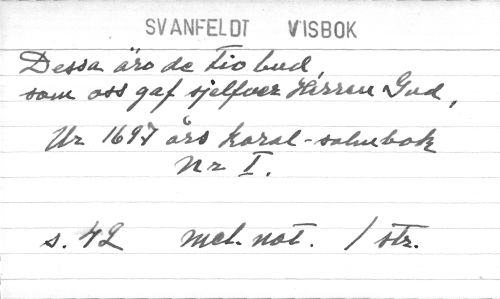 SVANFELDT VISBOK
Dessa äro de tio bud,
som oss gaf sjelfver Herren Gud,
Ur 1697 års koral-salmbok
Nr I.
s. 42 mel. not. 1 str.